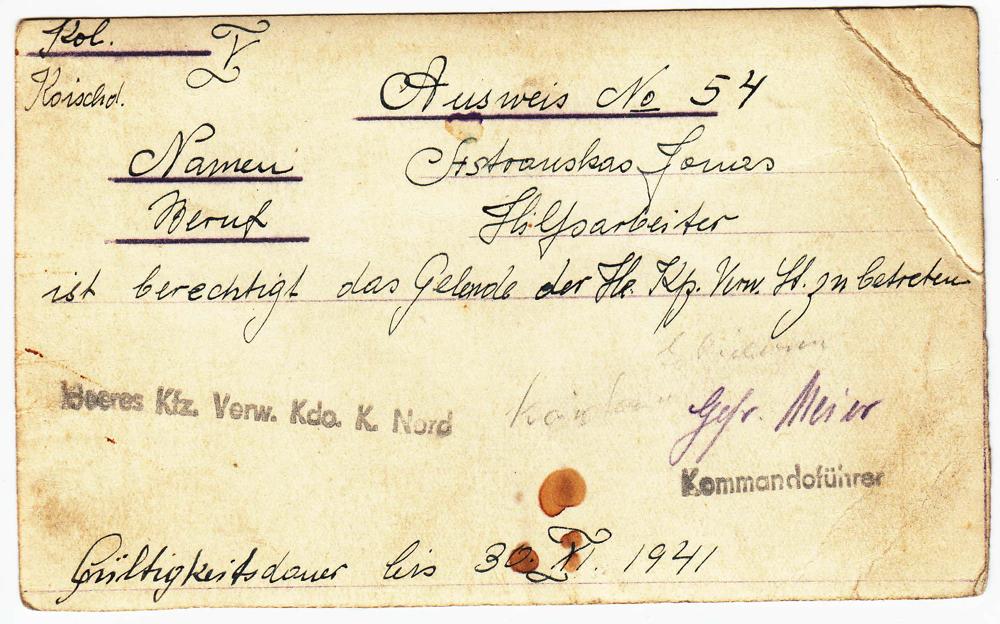 Kol. V
Koischd.
Ausweis No 54
Namen Astrauskas Jonas
Beruf Hilfsarbeiter
ist berechtigt das Gelende der He. Kfz. Verw. St. zu betreten
Heeres Kfz. Verw. Kdo. K. Nord
Gefr. Meier
Kommandoführer
Gültigkeitsdauer bis 30. XI. 1941